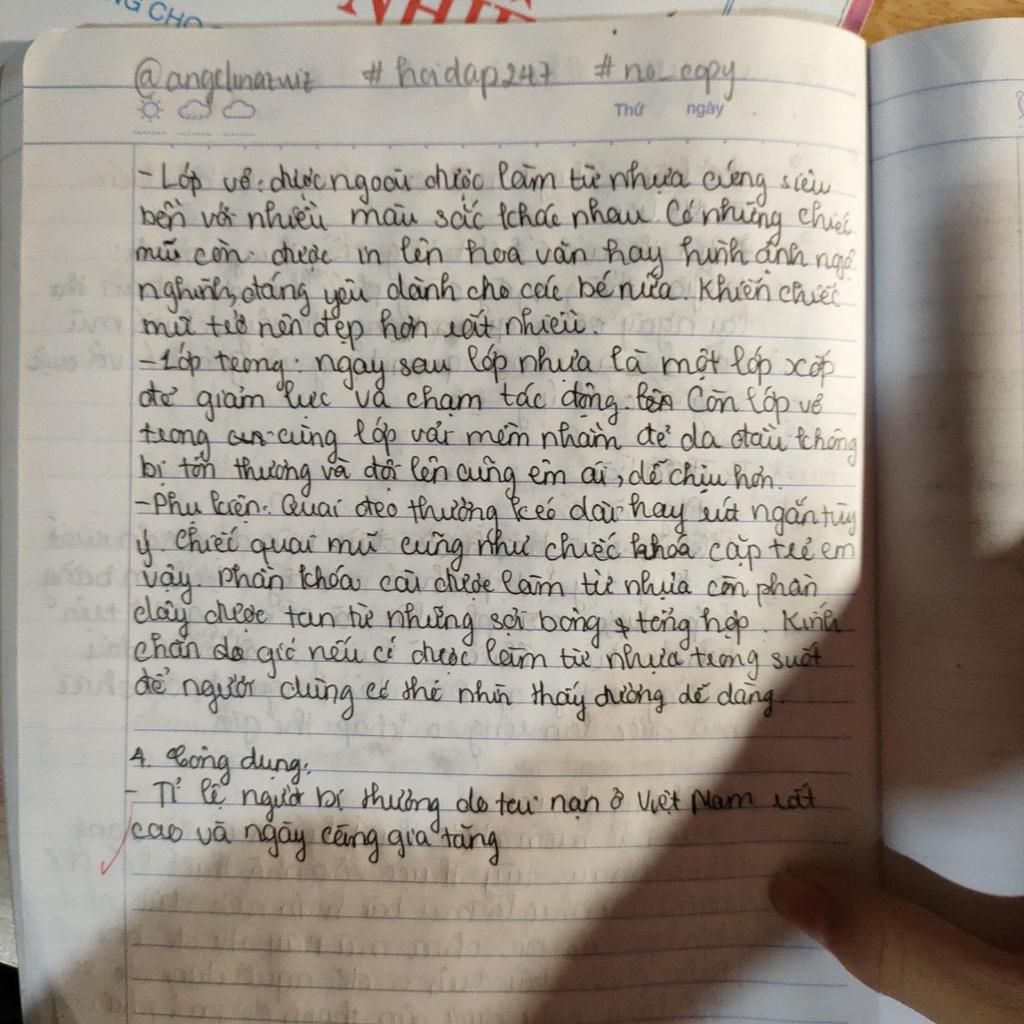 NG CHO
NHIÊ
@angelinazuiz #hoidap247 #no_copy
Thứ ngày
- Lớp vỏ: được ngoài được làm từ nhựa cứng siêu
bền với nhiều màu sắc khác nhau Có những chiếc
mũ còn được in lên hoa văn hay hình ảnh ngộ
nghĩnh, đáng yêu dành cho các bé nữa. Khiến chiếc
mũ trở nên đẹp hơn rất nhiều.
- Lớp trong: ngay sau lớp nhựa là một lớp xốp
để giảm lực va chạm tác động. Còn lớp vỏ
trong cùng lớp vải mềm nhằm để da đầu không
bị tổn thương và đội lên cũng êm ái, dễ chịu hơn.
- Phụ kiện: Quai đeo thường kéo dài hay rút ngắn tùy
ý. Chiếc quai mũ cũng như chiếc khóa cặp trẻ em
vậy. Phần khóa cài được làm từ nhựa còn phần
dây được tan từ những sợi bông tổng hợp. Kính
chắn gió nếu có được làm từ nhựa trong suốt
để người dùng có thể nhìn thấy đường dễ dàng.
4. Công dụng:
- Tỉ lệ người bị thương do tai nạn ở Việt Nam rất
cao và ngày càng gia tăng